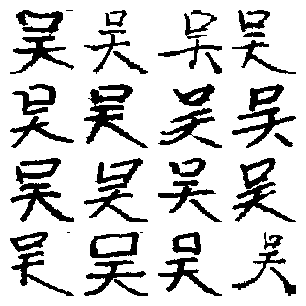 吴吴吴吴
吴吴吴吴
吴吴吴吴
吴吴吴吴